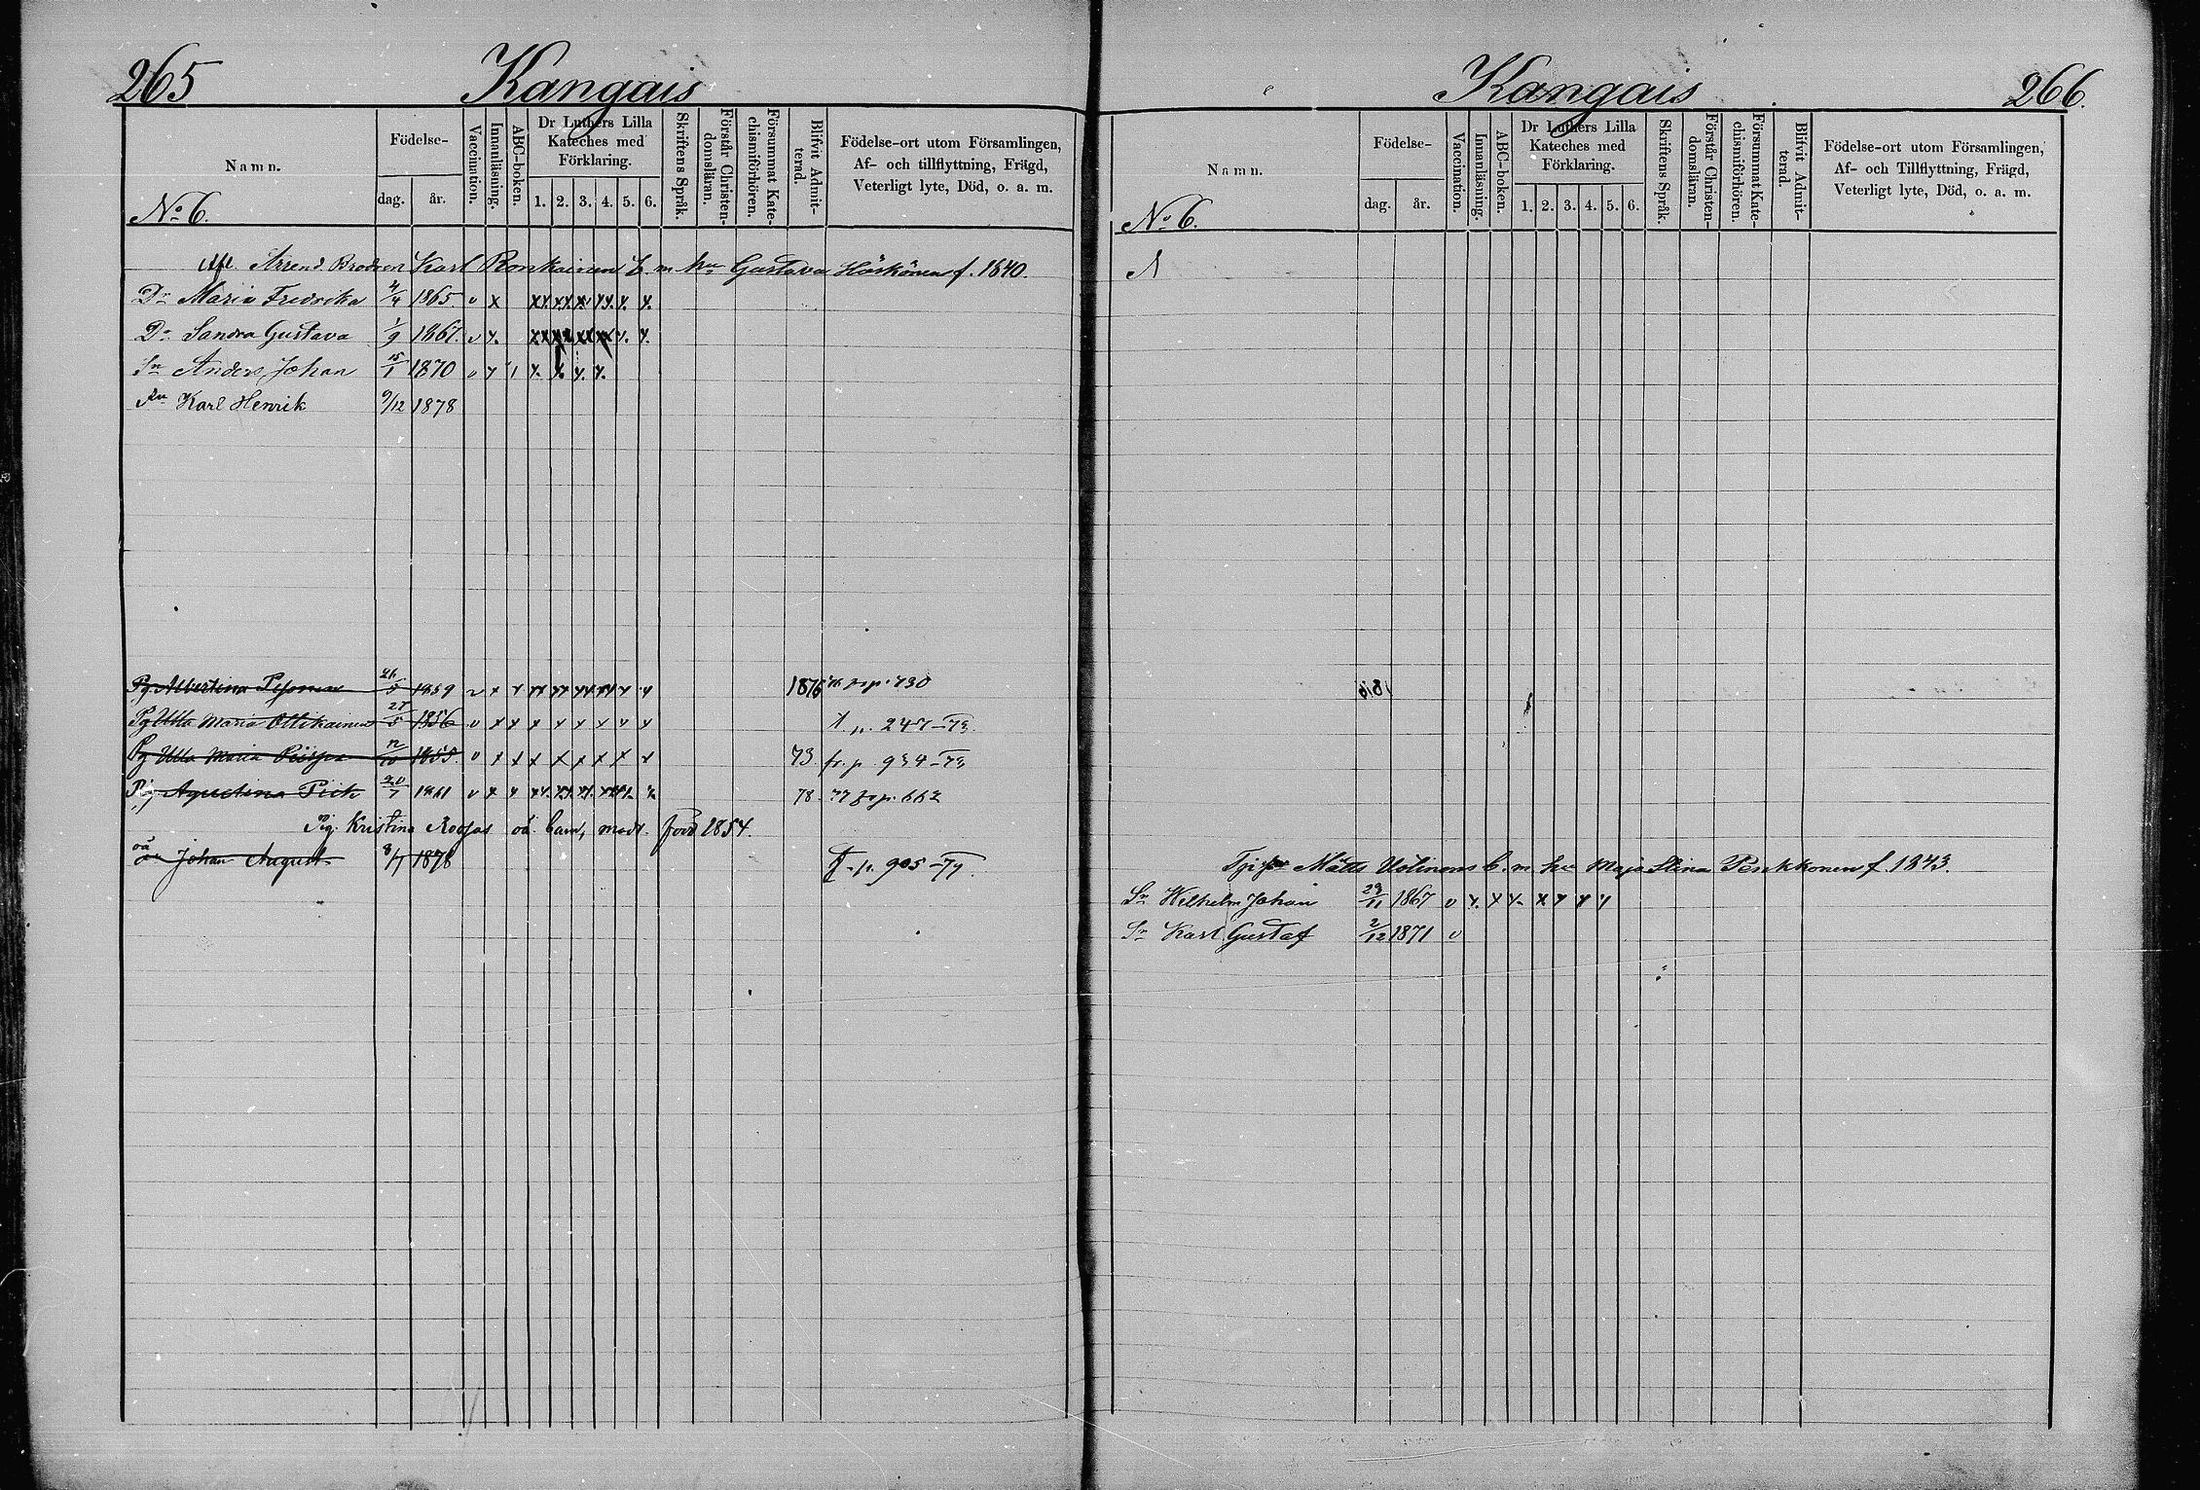 265 Kangais
Namn.
No 6.
Födelse-
dag. år.
Vaccination.
Innanläsning.
ABC-boken.
Dr Luthers Lilla Kateches med Förklaring.
1. 2. 3. 4. 5. 6.
Skriftens Språk.
Förstår Christendomsläran.
Försummat Katechismiförhören.
Blifvit Admitterad.
Födelse-ort utom Församlingen,
Af- och tillflyttning, Frägd,
Veterligt lyte, Död, o. a. m.
Arrend. Brodren Karl Ronkainens b. m. hu Gustava Hörkönen f. 1840.
Dr Maria Fredrika 4/4 1865. v x
Dr Sandra Gustava 1/9 1867. v x.
Sn Anders Johan 15/1 1870 v x 1 x. x. x. x.
Sn Karl Henrik 9/12 1878
Pg Albertina 1859 v x x 1876 730
Pg Ulla Maria Ottikainen 27/5 1856 v x x x x x x x x p. 247-73.
Pg Ulla Maria 12/10 1855. v x x x x x x x x 73. fr. p. 934-73
Pig Agustina 20/1 1861 v x x 78. 77 662
Pig. Kristina oä. barn, modr. född 1854.
oä sn Johan August 8/7 1878 p. 905-79.
Kangais 266.
Namn.
No 6.
Födelse-
dag. år.
Vaccination.
Innanläsning.
ABC-boken.
Dr Luthers Lilla Kateches med Förklaring.
1. 2. 3. 4. 5. 6.
Skriftens Språk.
Förstår Christendomsläran.
Försummat Katechismiförhören.
Blifvit Admitterad.
Födelse-ort utom Församlingen,
Af- och Tillflyttning, Frägd,
Veterligt lyte, Död, o. a. m.
Matts Uotinens b. m. hu Maja Stina Penkkonen f. 1843.
Sn Wilhelm Johan 29/11 1867 v x. x x. x x x x
Sn Karl Gustaf 2/12 1871 v